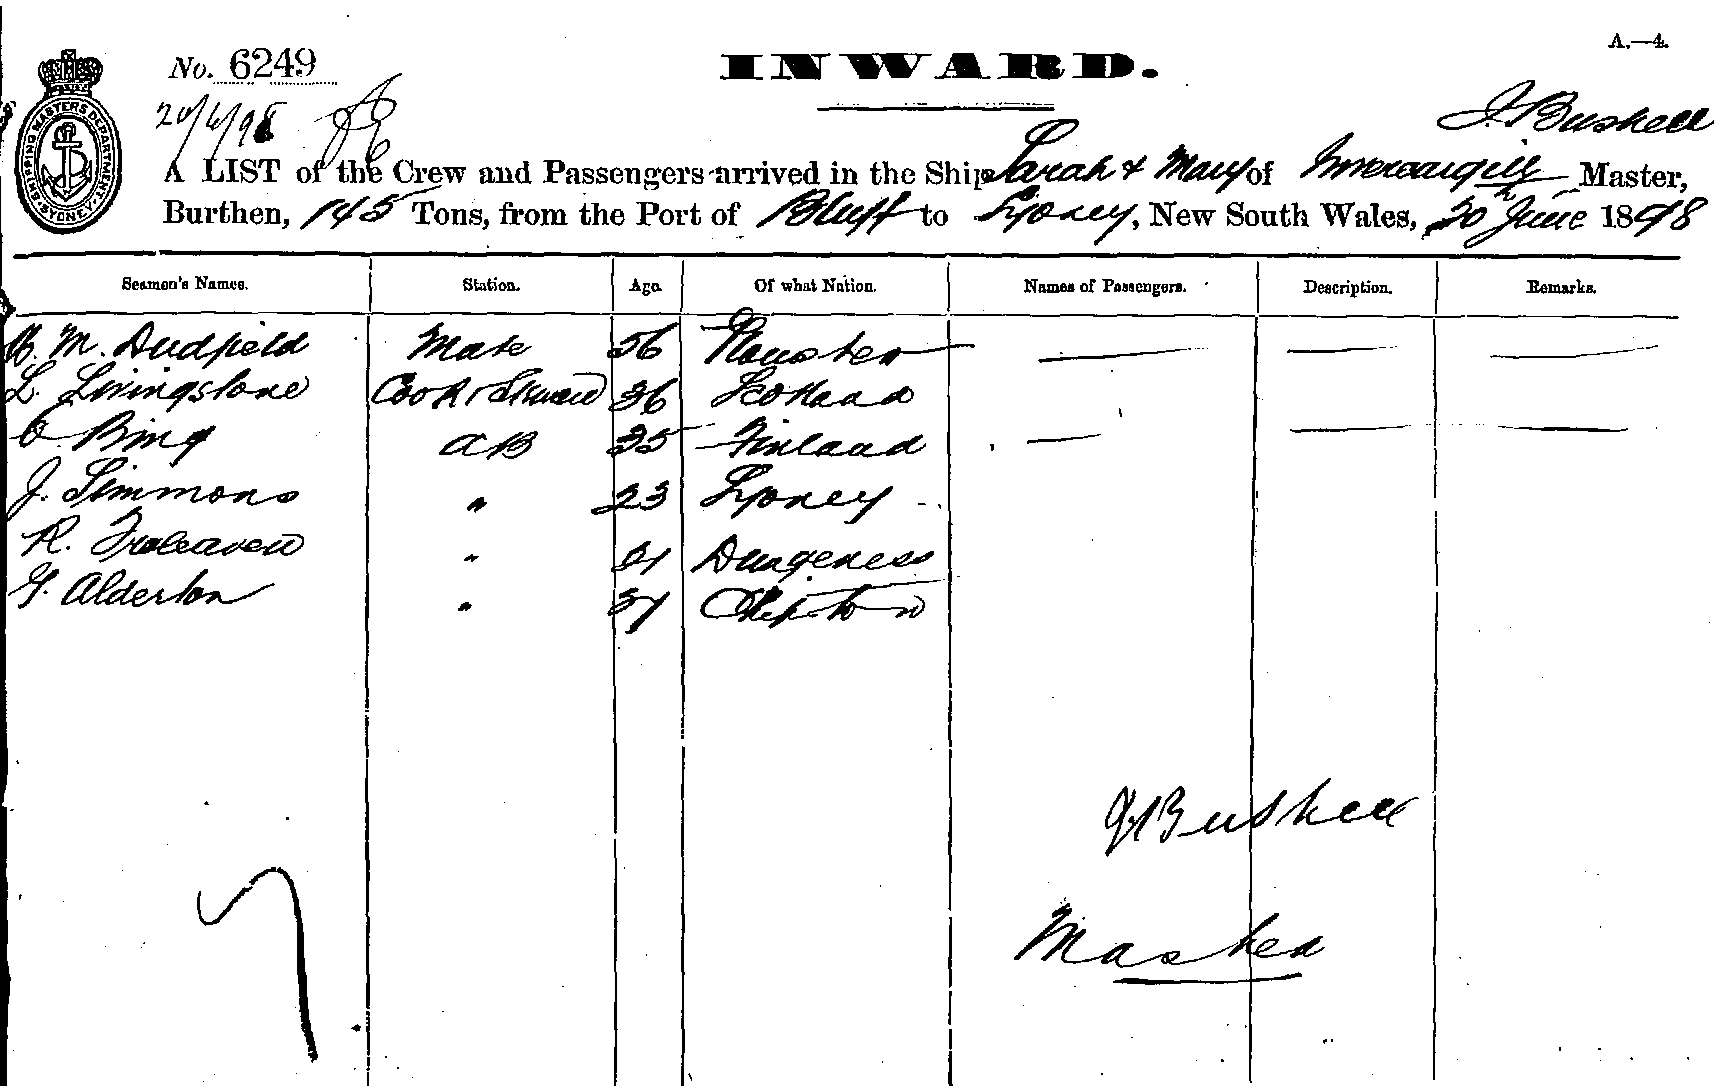 A.—4.
No. 6249
INWARD.
20/6/98
J. Bushell
SHIPPING MASTERS DEPARTMENT SYDNEY
A LIST of the Crew and Passengers arrived in the Ship Sarah & Mary of Invercargill Master,
Burthen, 145 Tons, from the Port of Bluff to Sydney, New South Wales, 20th June 1898
Seamen's Names. Station. Age. Of what Nation. Names of Passengers. Description. Remarks.
B. M. Dudfield Mate 56
L. Livingstone Cook & Steward 36 Scotland
C Bing AB 35 Finland
J. Simmons " 23 Sydney
R. Treleaven " 21 Dungeness
G. Alderton "
J Bushell
Master